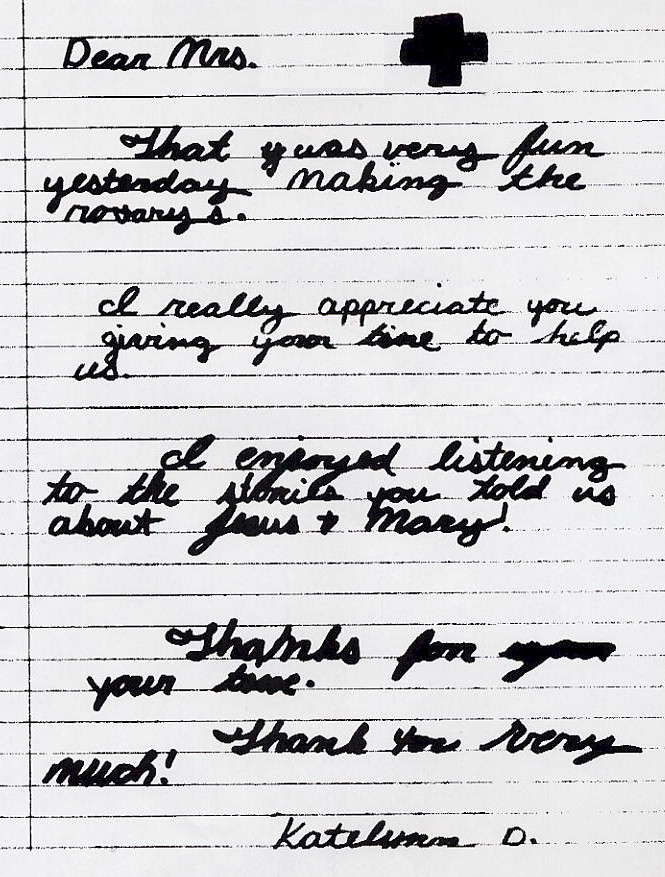 Dear Mrs.
That was very fun
yesterday making the
rosarys.
I really appreciate you
giving your time to help
us.
I enjoyed listening
to the stories you told us
about Jesus + Mary!
Thanks for
your time.
Thank you very
much!
Katelynn D.